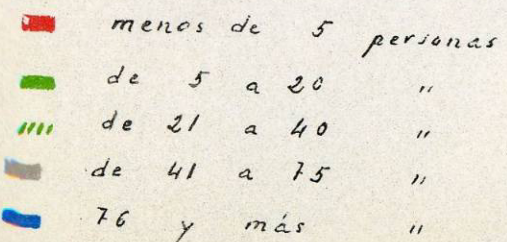 menos de 5 personas
de 5 a 20 "
de 21 a 40 "
de 41 a 75 "
76 y más "